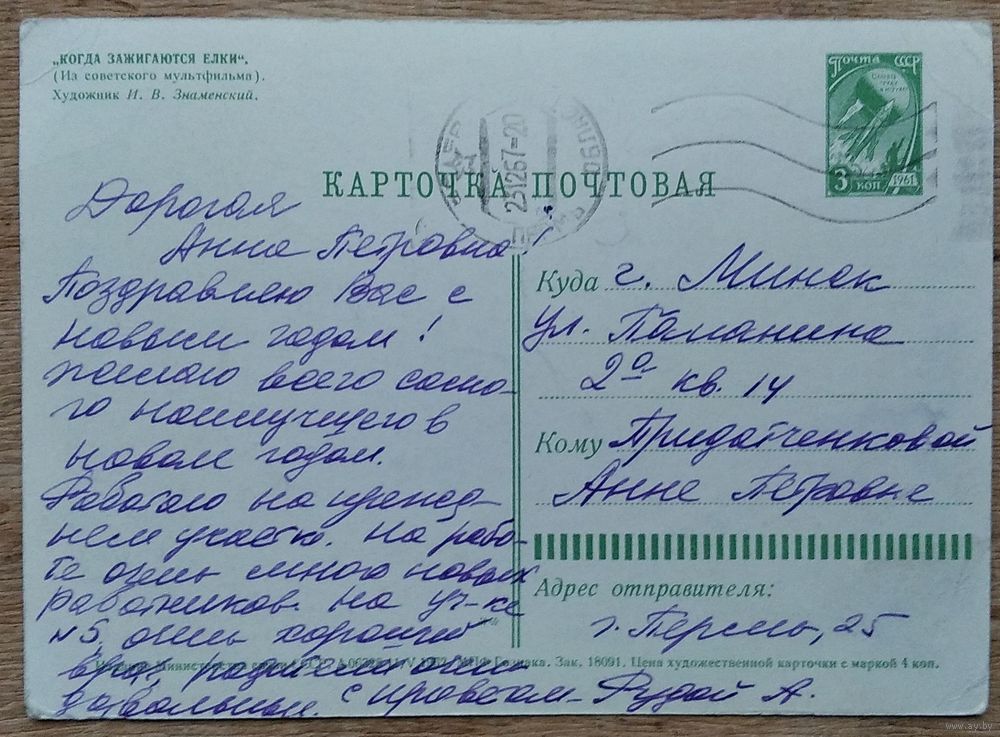 „КОГДА ЗАЖИГАЮТСЯ ЕЛКИ“.
(Из советского мультфильма).
Художник И. В. Знаменский.
Почта СССР
3 коп 1961
231267-20
КАРТОЧКА ПОЧТОВАЯ
Дорогая
Анна Петровна!
Поздравляю Вас с
новым годом!
желаю всего само-
го наилучшего в
новом годом.
Работаю на преж-
нем участке. На рабо-
те очень много новых
работников. На уч-ке
N5 очень хороший
врач, родители очень
довольны. С приветом – Рудой А.
Куда г. Минск
ул. Папанина
2а кв. 14
Кому Придатченковой
Анне Петровне
Адрес отправителя:
г. Пермь, 25
Министерства связи Гознака. Зак. 18091. Цена художественной карточки с маркой 4 коп.
www.ay.by